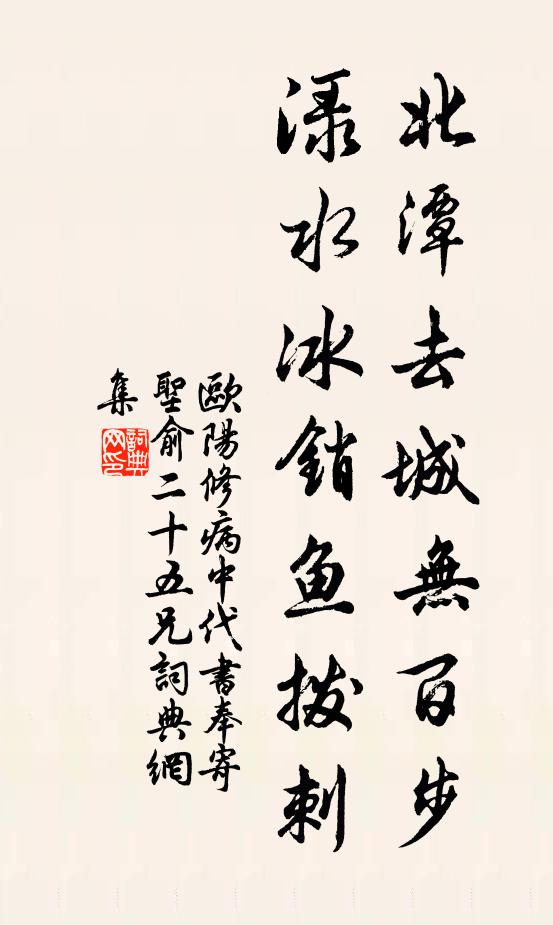 北潭去城無百步
渌水冰銷鱼撥刺
歐陽修病中代書奉寄
聖俞二十五兄詞典網
集
詞典
网印